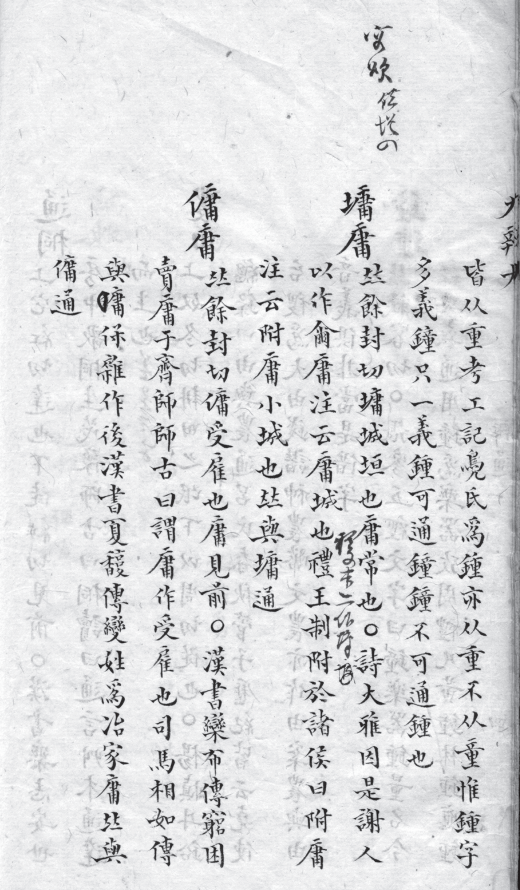 皆从重考工記鳧氏爲鍾亦从重不从童惟鍾字
多義鐘只一義鍾可通鐘鐘不可通鍾也
墉庸
𠀤餘封切墉城垣也庸常也〇詩大雅因是謝人
以作爾庸注云庸城也禮王制附於諸侯曰附庸
注云附庸小城也𠀤與墉通
傭庸
𠀤餘封切傭受雇也庸見前〇漢書欒布傳窮困
賣庸于齊師師古曰謂庸作受雇也司馬相如傳
與庸保雜作後漢書夏馥傳變姓爲冶家庸𠀤與
傭通